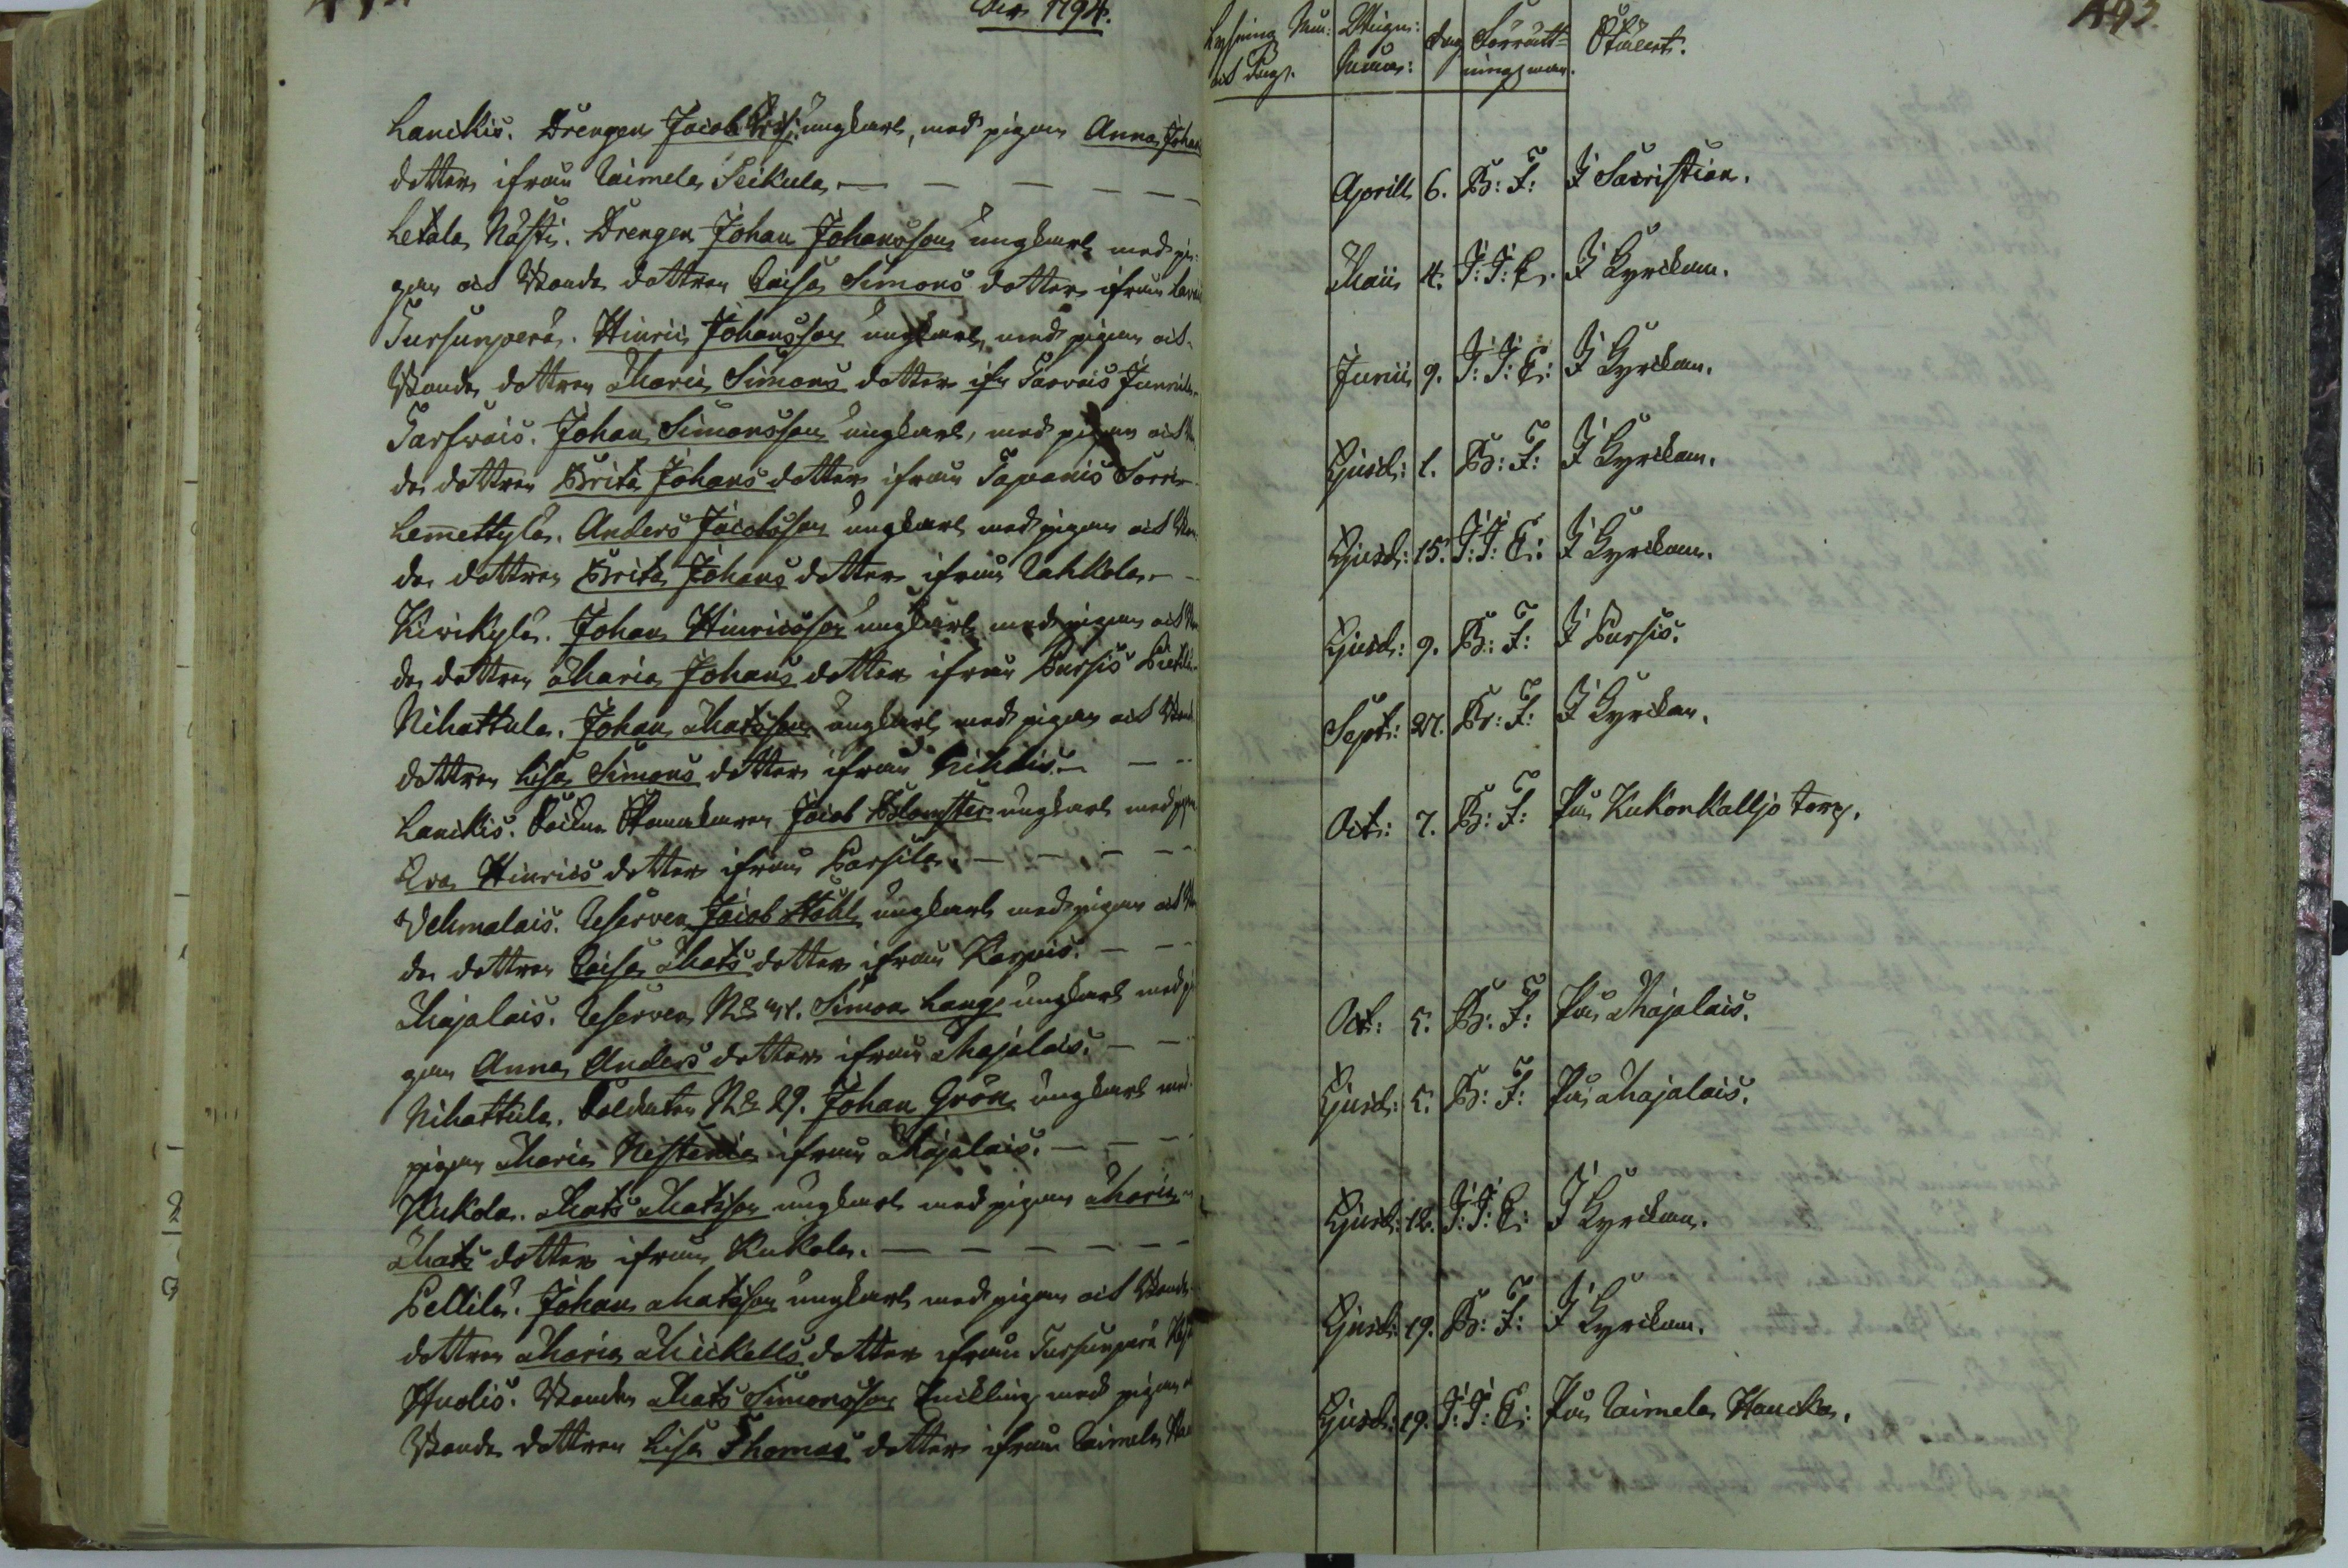 År 1794.
Lanckis. Drengen Jacob ungkarl, med pigan Anna Johans
dotter ifrån Raimela Seikula
Letala Nästi. Drengen Johan Johansson ungkarl med pi-
gan och Bonde dottren Caisa Simons dotter ifrån
Tursunperä. Hinric Johansson ungkarl, med pigan och
Bonde dottren Maria Simons dotter ifr. Sarvais
Sarfvais. Johan Simonsson ungkarl, med pigan och Bon
de dottren Brita Johans dotter ifrån Tapanis Sorri
Lemettylä. Anders Jacobsson ungkarl med pigan och Bon
de dottren Brita Johans dotter ifrån Rahkola
Kivikylä. Johan Hinricsson ungkarl med pigan och Bon
de dottren Maria Johans dotter ifrån Pursis
Nihattula. Johan Matsson ungkarl med pigan och Bonde
dottren Lisa Simons dotter ifrån Nihtiö
Lanckis. Sockne Skomakaren Jacob Blomster ungkarl med pigan
Eva Hinrics dotter ifrån Parsila.
Vehmalais. Reserven Jacob Ståhl ungkarl med pigan och Bon
de dottren Caisa Mats dotter ifrån Karpis.
Majalais. Reserven No 41. Simon Lang ungkarl med pi
gan Anna Anders dotter ifrån Majalais.
Nihattula. Soldaten No 29. Johan Grön ungkarl med
pigan Maria ifrån Majalais.
Kukola. Mats Matsson ungkarl med pigan Maria
Mats dotter ifrån Kukola.
Pellilä. Johan Matsson ungkarl med pigan och Bonde
dottren Maria Mickells dotter ifrån Tursunperä
Huolis. Bonden Mats Simonsson Enckling med pigan
Bonde dottren Lisa Thomas dotter ifrån Raimela
493.
Lysning Num: Wigni: dag Förrätt= Stället.
och dags. ningsman.
Aprill 6. B: F: I Sacristian.
Maii 4. J: J: E: I Kyrckan.
Junii 9. J: J: E: I Kyrckan.
Ejusd: 1. B: F: I Kyrckan.
Ejusd: 15. J: J: E: I Kyrckan.
Ejusd: 9. B: F: I Pursis.
Sept: 27. B: F: I Kyrckan.
Oct: 7. B: F: På Kukonkalljo torp.
Oct: 5. B: F: På Majalais.
Ejusd: 5. B: F: På Majalais.
Ejusd: 12. J: J: E: I Kyrckan.
Ejusd: 19. B: F: I Kyrckan.
Ejusd: 19. J: J: E: På Raimela Haucka.